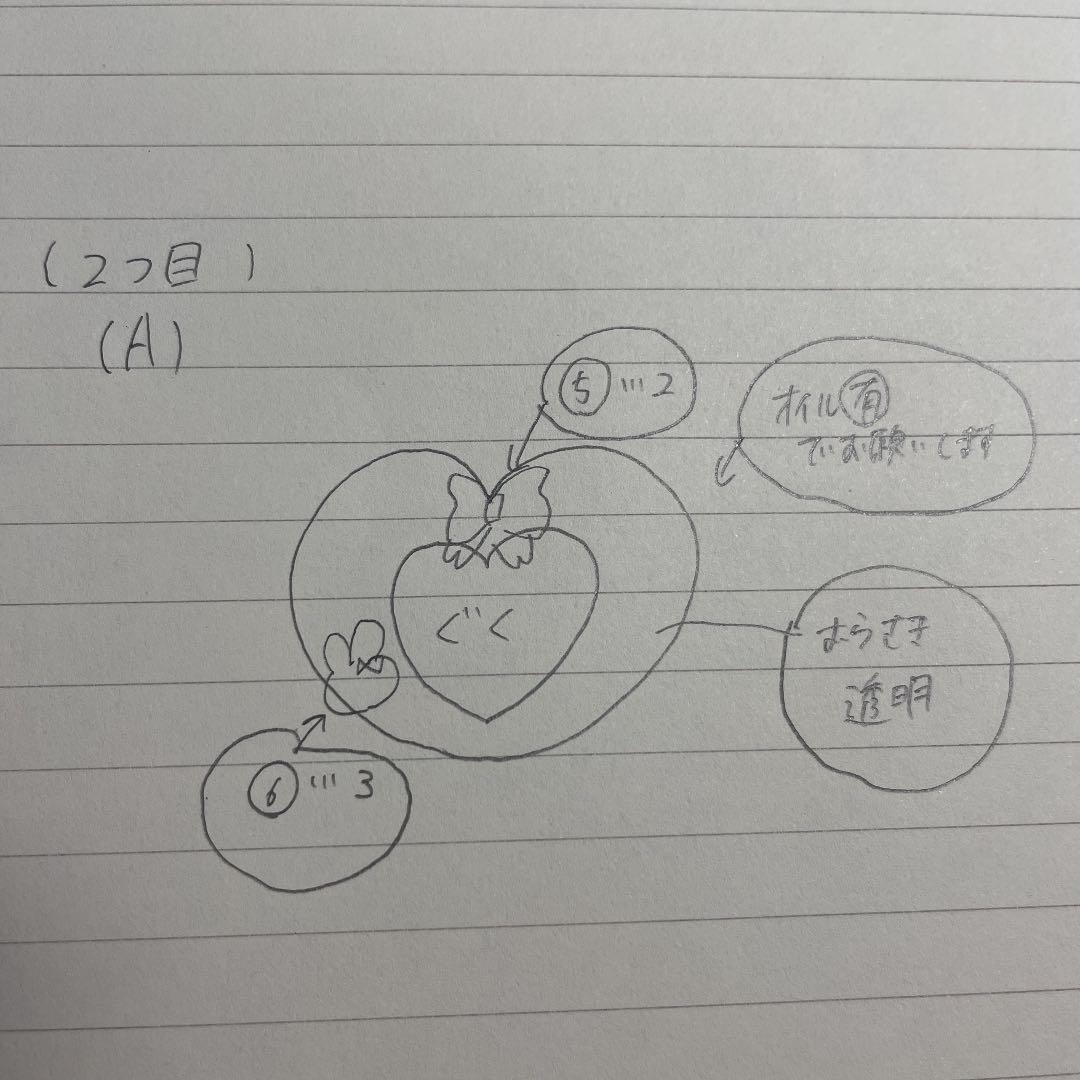 (2つ目)
(A)
⑤…2
オイル有
でお願いします
ぐく
むらさき
透明
⑥…3